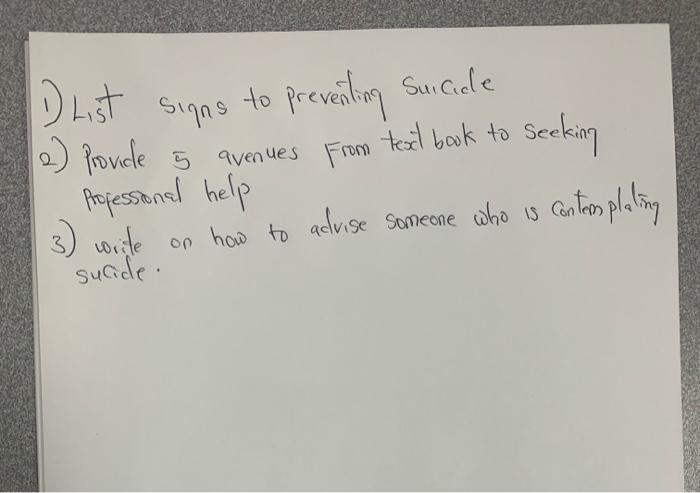 1) List signs to preventing Suicide
2) Provide 5 avenues From text book to seeking
Professional help
3) write on how to advise someone who is contemplating
sucide.